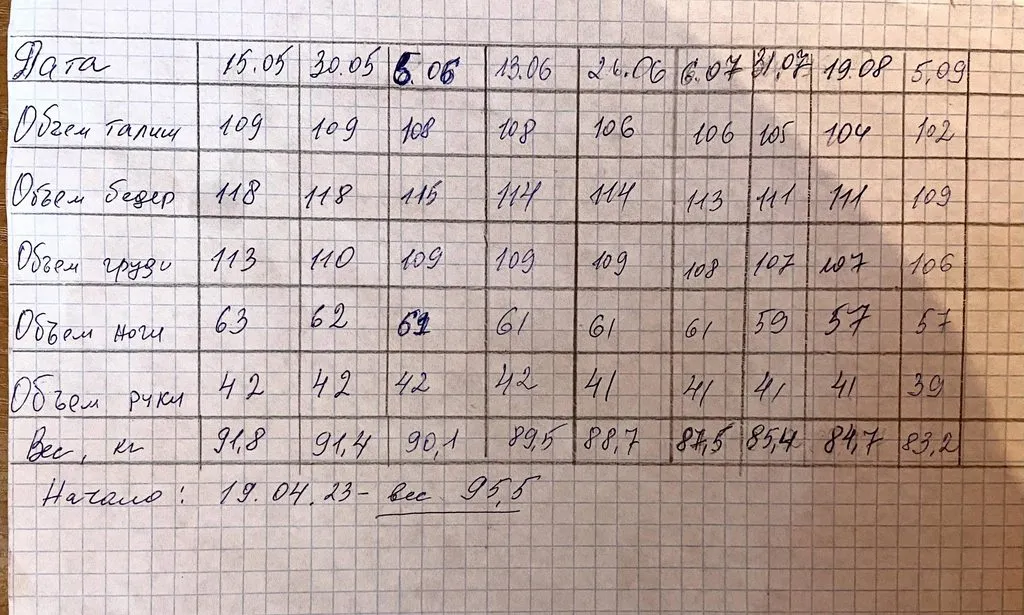 Дата 15.05 30.05 5.06 13.06 26.06 6.07 31.07 19.08 5,09
Объем талии 109 109 108 108 106 106 105 104 102
Объем бедер 118 118 115 114 114 113 111 111 109
Объем груди 113 110 109 109 109 108 107 107 106
Объем ноги 63 62 61 61 61 61 59 57 57
Объем руки 42 42 42 42 41 41 41 41 39
Вес, кг 91,8 91,4 90,1 89,5 88,7 87,5 85,4 84,7 83,2
Начало: 19.04.23 - вес 95,5